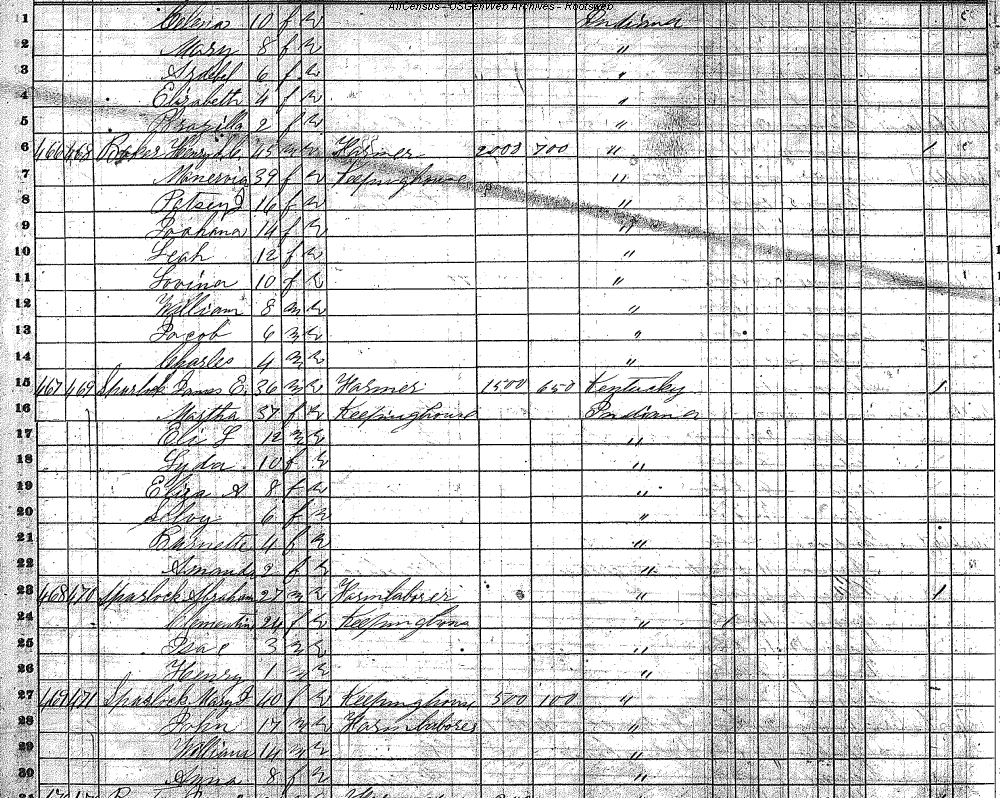 AllCensus - USGenWeb Archives - Rootsweb
1 10 f w Indiana
2 Mary 8 f w "
3 6 f w "
4 Elizabeth 4 f w "
5 2 f w "
6 466 468 Baker 45 m w Farmer 2000 700 " 1
7 Minervia 39 f w Keepinghouse "
8 16 f w "
9 14 f w "
10 Leah 12 f w "
11 Lovina 10 f w "
12 William 8 m w "
13 Jacob 6 m w "
14 Charles 4 m w "
15 467 469 Sparlock James E. 36 m w Farmer 1500 650 Kentucky 1
16 Martha 37 f w Keepinghouse Indiana
17 Eli 12 m w "
18 Lyda 10 f w "
19 Eliza A 8 f w "
20 6 f w "
21 4 f w "
22 Amanda 2 f w "
23 468 470 Sparlock Abraham 27 m w Farmlaborer " 1
24 24 f w Keepinghous "
25 Isac 3 m w "
26 Henry 1 m w "
27 469 471 Sparlock Mary 40 f w Keepinghouse 500 100 "
28 John 17 m w Farmlaborer "
29 William 14 m w "
30 Anna 8 f w "